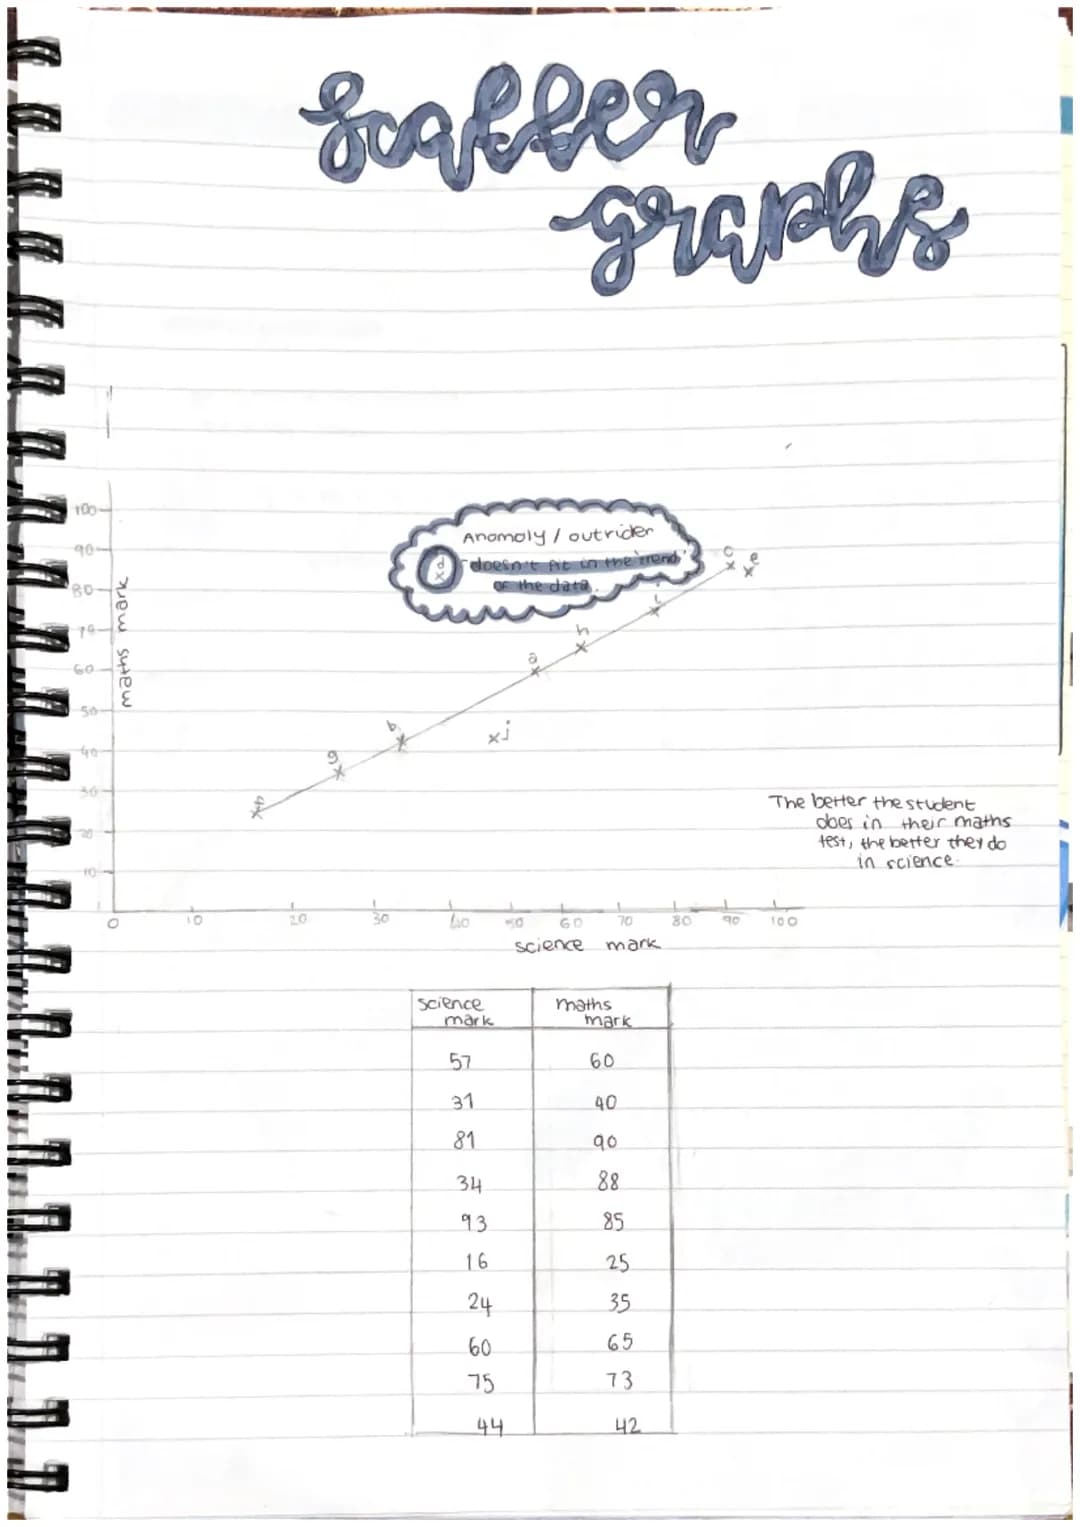 Scatter
graphs
100
Anomoly / outrider
90
d
doesn't fit in the trend
c
e
80
of the data.
i
70
h
maths mark
60
a
50
b
j
40
g
30
f
20
10
The better the student
does in their maths
test, the better they do
in science.
0 10 20 30 40 50 60 70 80 90 100
science mark
science mark
maths mark
57 60
31 40
81 90
34 88
93 85
16 25
24 35
60 65
75 73
44 42